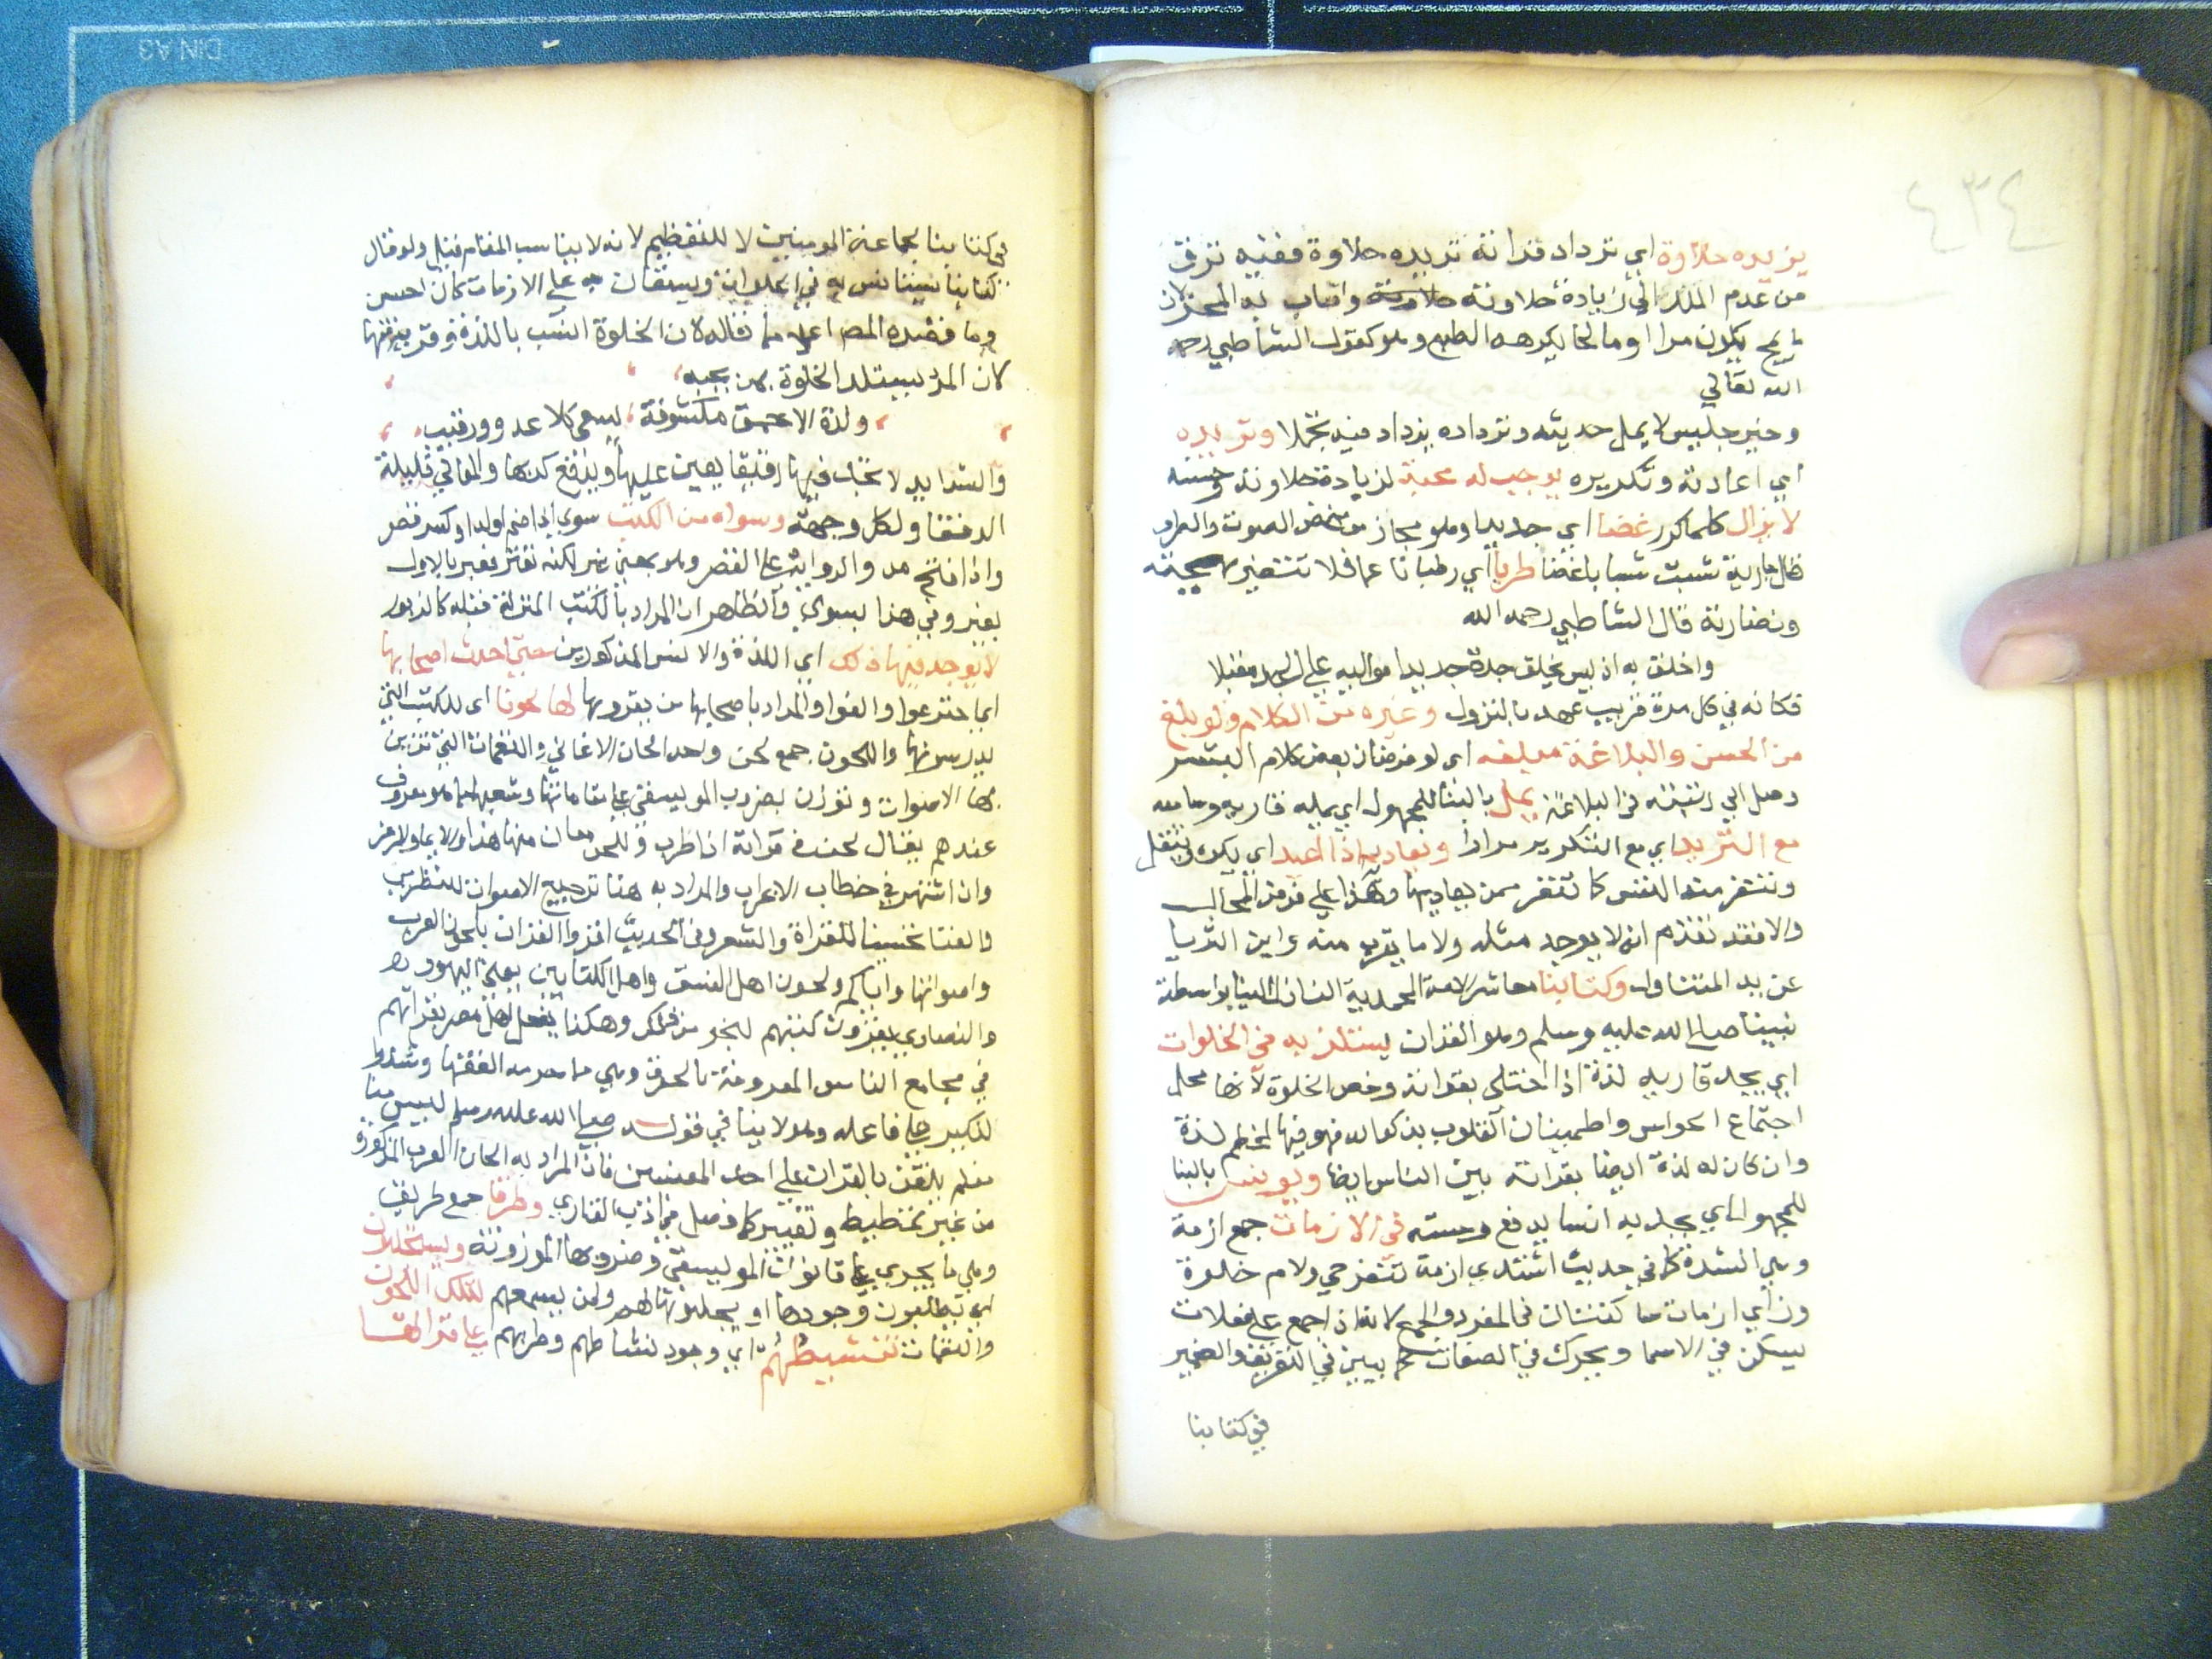 ٤٣٤
يزيده حلاوة اي ترداد قراته تزيده حلاوة ففيه ترق
من عدم الملل الي زيادة حلاوته واصاب به المحز لان
ما يمج يكون مرا او مالحا يكرهه الطبع وهو كقول الشاطبي رحمه
الله تعالي
وخير جليس لا يمل حديثه وترداده يزداد فيه تجملا وترديده
اي اعادته وتكريره يوجب له محبة لزيادة حلاوته وحسنه
لا يزال كلما كرر غضا اي جديدا وهو مجاز من غض الصوت والمراد
شبابا غضا طريا اي رطبا ناعما فلا تتغير بهجته
ونضارته قال الشاطبي رحمه الله
واخلق به اذ ليس يخلق جدة جديدا مواليه علي الجد مقبلا
فكانه في كل مرة قريب عهد بالنزول وغيره من الكلام ولو بلغ
من الحسن والبلاغة مبلغه اي لو فرضنا ان بعض كلام البشر
وصل الي رتبته في البلاغة يمل بالبنا للمجهول اي يمله قاريه وسامعه
مع الترديد اي مع التكرير مرارا ويعادي اذا اعيد اي يكره ويثقل
وتنفر منه النفس كما تنفر ممن يعاديها وهذا علي فرض المحال
والا فقد تقدم انه لا يوجد مثله ولا ما يقرب منه واين الثريا
عن يد المتناول وكتابنا معاشر الامة المحمدية النازل الينا بواسطة
نبينا صلي الله عليه وسلم وهو القران يستلذ به في الخلوات
اي يجد قاريه لذة اذا اختلي بقراته وخص الخلوة لانها محل
اجتماع الحواس واطمينان القلوب بذكر الله فهو فيها اعظم لذة
وان كان له لذة ايضا بقراته بين الناس ايضا ويونس بالبنا
للمجهول اي يجد به انسا يدفع وحشته في الازمات جمع ازمة
وهي الشدة كما في حديث اشتدي ازمة تنفرجي ولام خلوة
وزاي ازمات ساكنتان في المفرد والجمع لانه اذا جمع علي فعلات
يسكن في الاسما ويحرك في الصفات كما بين في التصريف والضمير
في كتابنا
في كتابنا لجماعة المومنين لا للتعظيم لانه لا يناسب المقام قيل ولو قال
كتابنا يستانس به في الخلوات ويستعان به علي الازمات كان احسن
وما قصده المص اعلي مما قاله لان الخلوة انسب باللذة
لان المرء يستلذ الخلوة بمن يحبه
ولذة الاعشق مكشوفة يسعي لا عدو ورقيب
والشدايد لا تحتاج فيها رفيقا يعين عليها ويدفع كربها والمعاني قليلة
ولكل وجهة وسواه من الكتب سوي اذا ضم اوله او كسر قصر
واذا فتح مد والرواية علي القصر وهو بمعني غير لكنه تفنن فعبر بالاول
بغير وفي هذا بسوي والظاهر ان المراد بالكتب المنزلة قبله كالزبور
لا يوجد فيها ذلك اي اللذة والانس المذكورين حتي احدث اصحابها
اي اخترعوا والفوا والمراد باصحابها من يقروها لها لحونا اي للكتب التي
يدرسونها واللحون جمع لحن واحد الحان الاغاني والنغمات التي تزين
بها الاصوات وتوزن بضروب الموسيقي علي مقاماتها وشعبها كما هو معروف
عندهم يقال لحن في قراته اذا طرب وللحن معان منها هذا والايماء والرمز
وان اشتهر في خطاب الاعراب والمراد به هنا ترجيع الاصوات للتطريب
والغنا تحسينا للقراة والشعر وفي الحديث اقروا القران بلحون العرب
واصواتها واياكم ولحون اهل الفسق واهل الكتابين يعني اليهود
والنصاري يقرون كتبهم نحو من ذلك وهكذا يفعل اهل مصر بقراتهم
في مجامع الناس المعروفة بالحرف وهي ما حرمه الفقها وشددوا
النكير علي فاعله وهو لا ينافي قوله صلي الله عليه وسلم ليس منا
من لم يتغن بالقران علي احد المعنيين فان المراد به الحان العرب المذكورة
من غير تمطيط وتغيير كما فصل في اداب القاري وطرقا جمع طريق
وهي ما يجري علي قانون الموسيقي وضروبها الموزونة ويستجلبون
اي يطلبون وجودها او يجلبونها لهم ولمن يسمعهم بتلك اللحون
والنغمات تنشيطهم اي وجود نشاطهم وطربهم علي قراتها